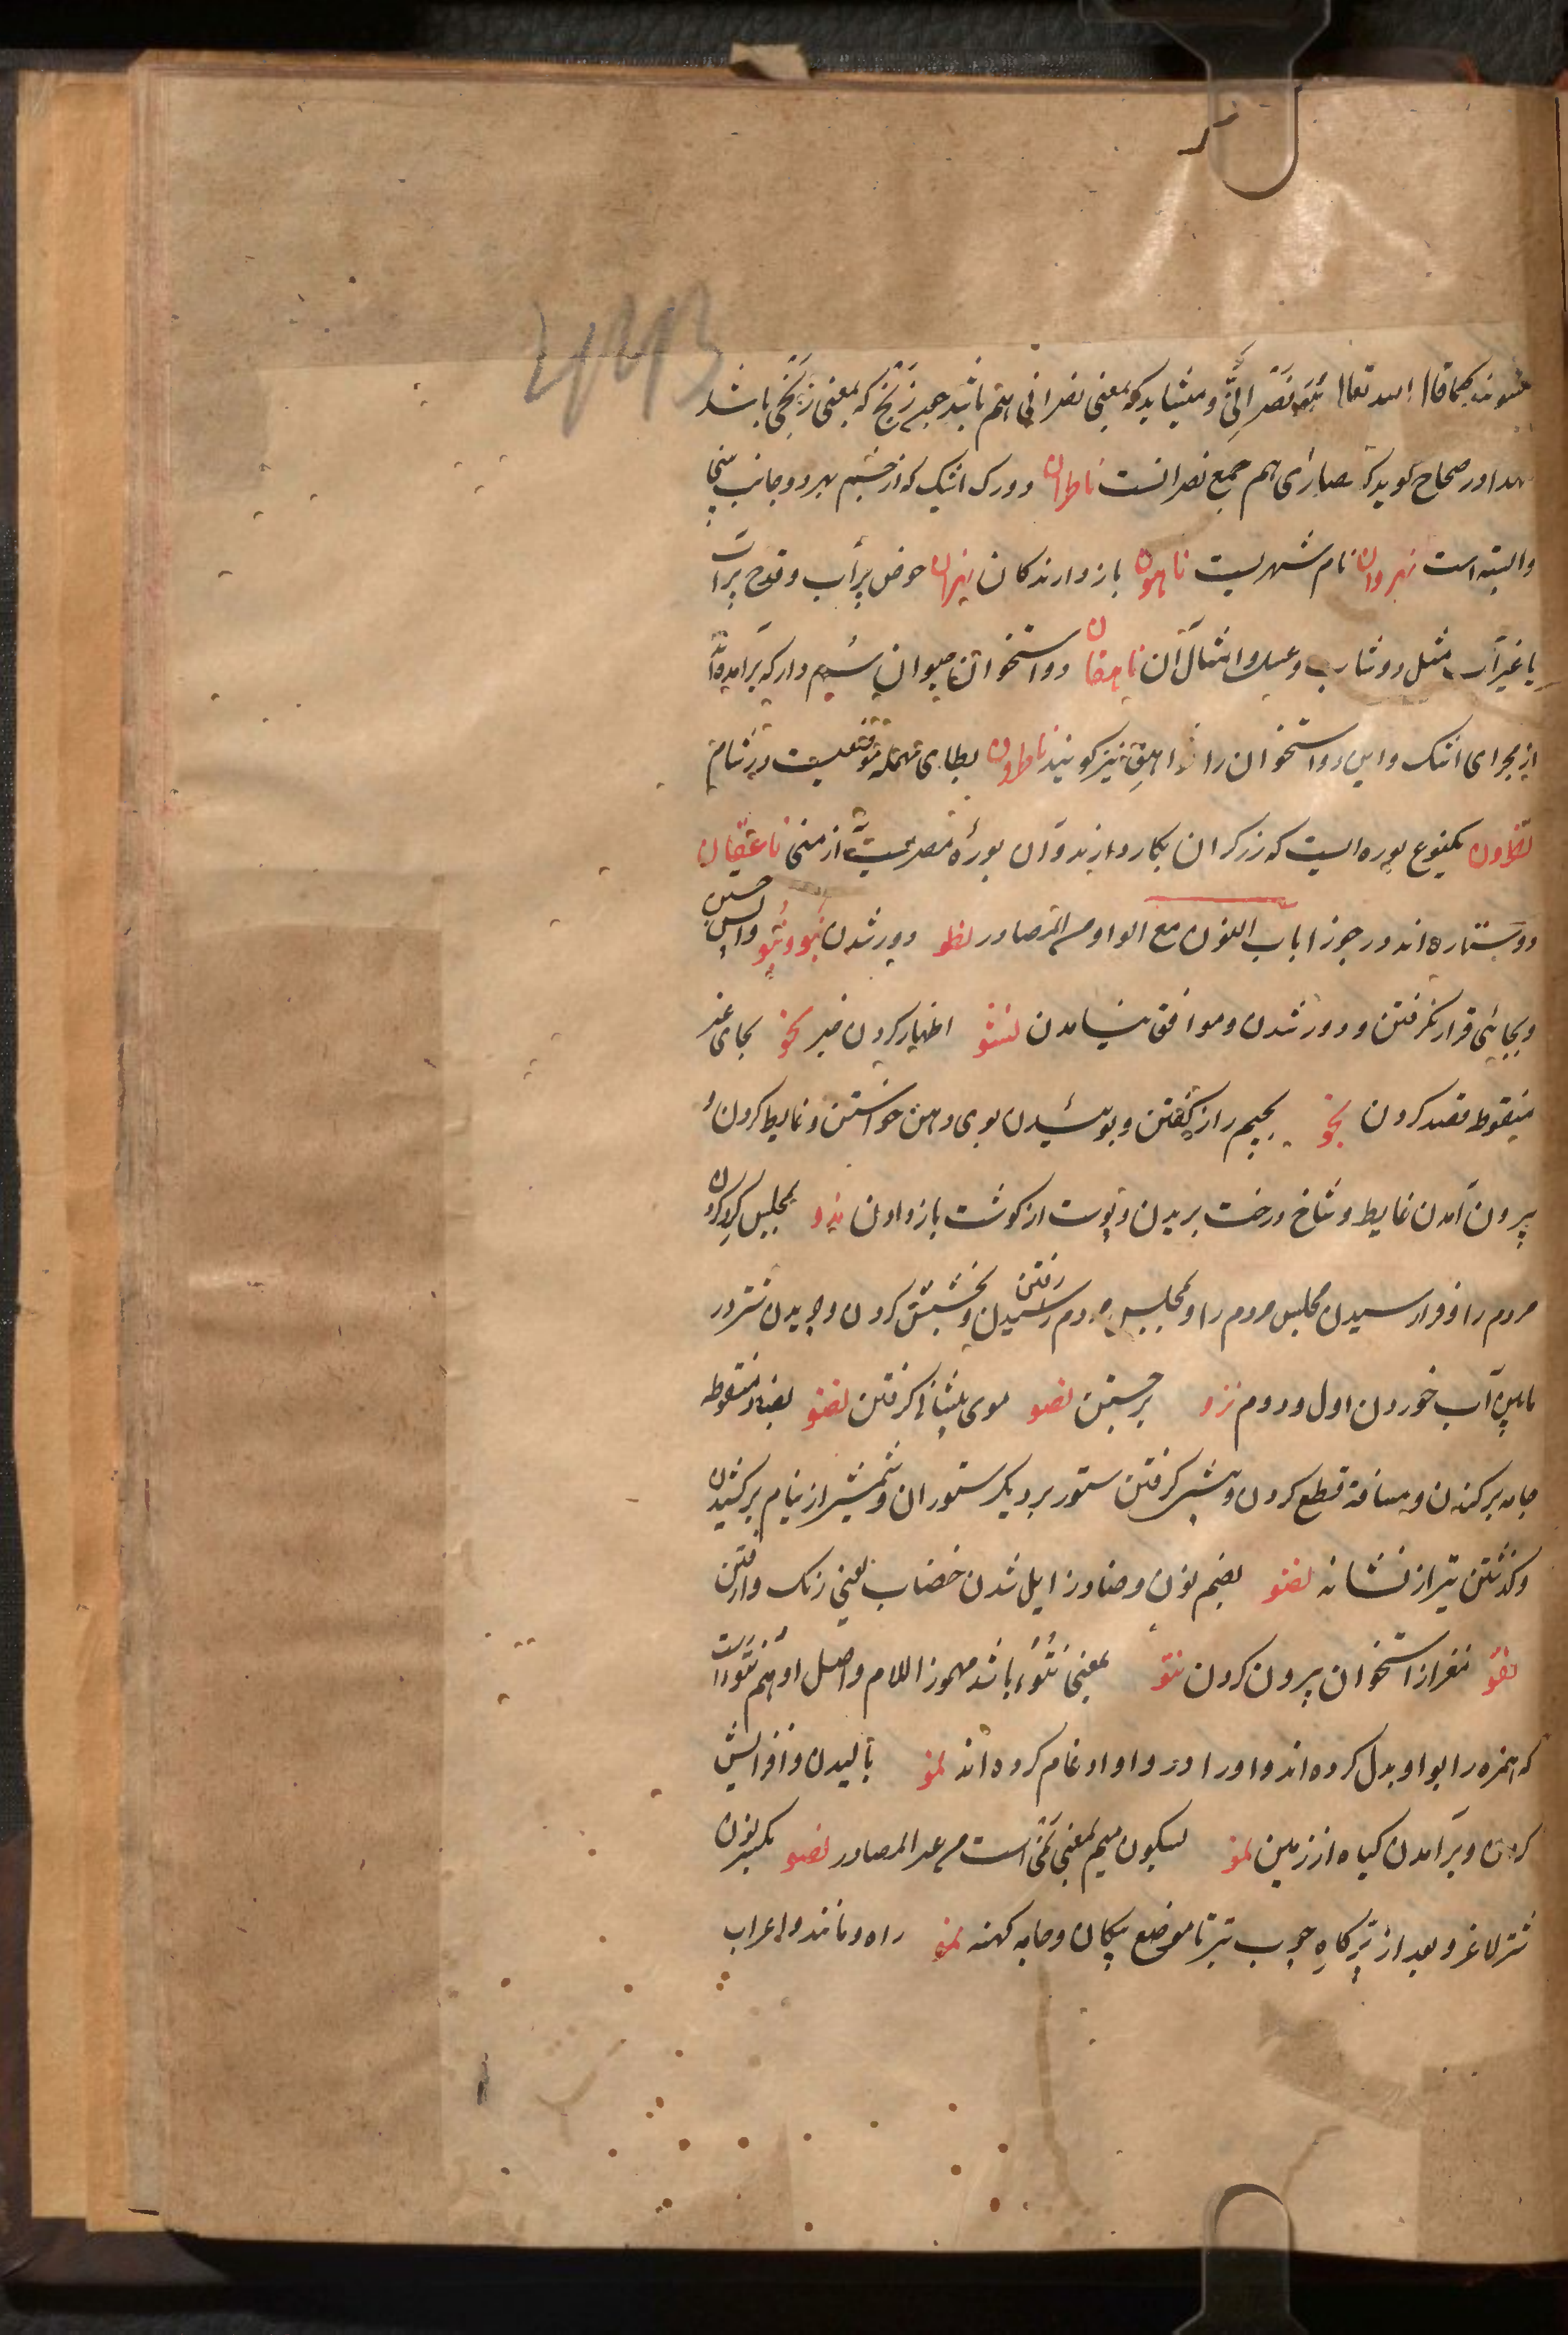 کما قال الله تعالی نصرانی و میشاید که بمعنی نصرانی هم باشد چون زنج که بمعنی زنجی باشد
در صحاح گوید که نصاری هم جمع نصرانست ناطران دو رگ اشک که از چشم بهر دو جانب بینی
وابسته است نهروان نام شهریست ناهون بازدارندگان نهران حوض پر آب و قدح پر آب
یا غیر آب مثل دوشاب و عسل و امثال آن ناهقان دو استخوان حیوان سم دار که برآمده اند
از مجرای اشک و این دو استخوان را نواهق نیز گویند ناطرون بطای مهمله موضعیست در شام
نطرون یکنوع بوره ایست که زرگران بکار دارند و آن بورهٔ مصریست از منی ناعقان
دو ستاره اند در جوزا باب النون مع الواو من المصادر نطو دور شدن نبو و نبو واپس جستن
و بجائی قرار نگرفتن و دور شدن و موافق نیامدن نشو اظهار کردن خبر نخو بخای
منقوط قصد کردن نجو بجیم راز گفتن و بوئیدن بوی دهن خواستن و غایط کردن و
بیرون آمدن غایط و شاخ درخت بریدن و پوست از گوشت باز دادن ندو بمجلس گرد کردن
مردم را و فرا رسیدن مجلس مردم را و بمجلس مردم رسیدن رفتن و بخشش کردن و چریدن شتر در
مابین آب خوردن اول و دوم نزو برجستن نصو موی پیشانی گرفتن نضو بضاد منقوطه
جامه برکندن و مسافة قطع کردن و پیشی گرفتن ستور بر دیگر ستوران و شمشیر از نیام برکشیدن
و گذشتن تیر از نشانه نضو بضم نون و ضاد زایل شدن خضاب یعنی رنگ وارفتن
نقو مغز از استخوان بیرون کردن نتو بمعنی نتوء باشد مهموز اللام و اصل او هم نتوء است
که همزه را بواو بدل کرده اند و او را در واو ادغام کرده اند نمو بالیدن و افزایش
کردن و برآمدن گیاه از زمین نمو بسکون میم بمعنی نمی است من غیر المصادر نضو بکسر نون
شتر لاغر و بعد از تیرگاه چوب تیر تا موضع پیکان و جامه کهنه نحو راه و مانند و اعراب